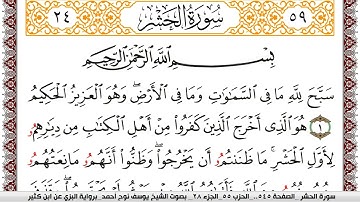 ٢٤ سُورَةُ الْحَشْرِ ٥٩
بِسْمِ اللَّهِ الرَّحْمَٰنِ الرَّحِيمِ
سَبَّحَ لِلَّهِ مَا فِي السَّمَٰوَٰتِ وَمَا فِي الْأَرْضِ ۖ وَهُوَ الْعَزِيزُ الْحَكِيمُ
١ هُوَ الَّذِي أَخْرَجَ الَّذِينَ كَفَرُوا مِنْ أَهْلِ الْكِتَٰبِ مِن دِيَٰرِهِمُ
لِأَوَّلِ الْحَشْرِ ۚ مَا ظَنَنتُمُ أَن يَخْرُجُوا ۖ وَظَنُّوا أَنَّهُمُ مَانِعَتُهُمُ
سورة الحشر الصفحة ٥٤٥.. الحزب ٥٥.. الجزء ٢٨ بصوت الشيخ يوسف نوح أحمد برواية البزي عن ابن كثير